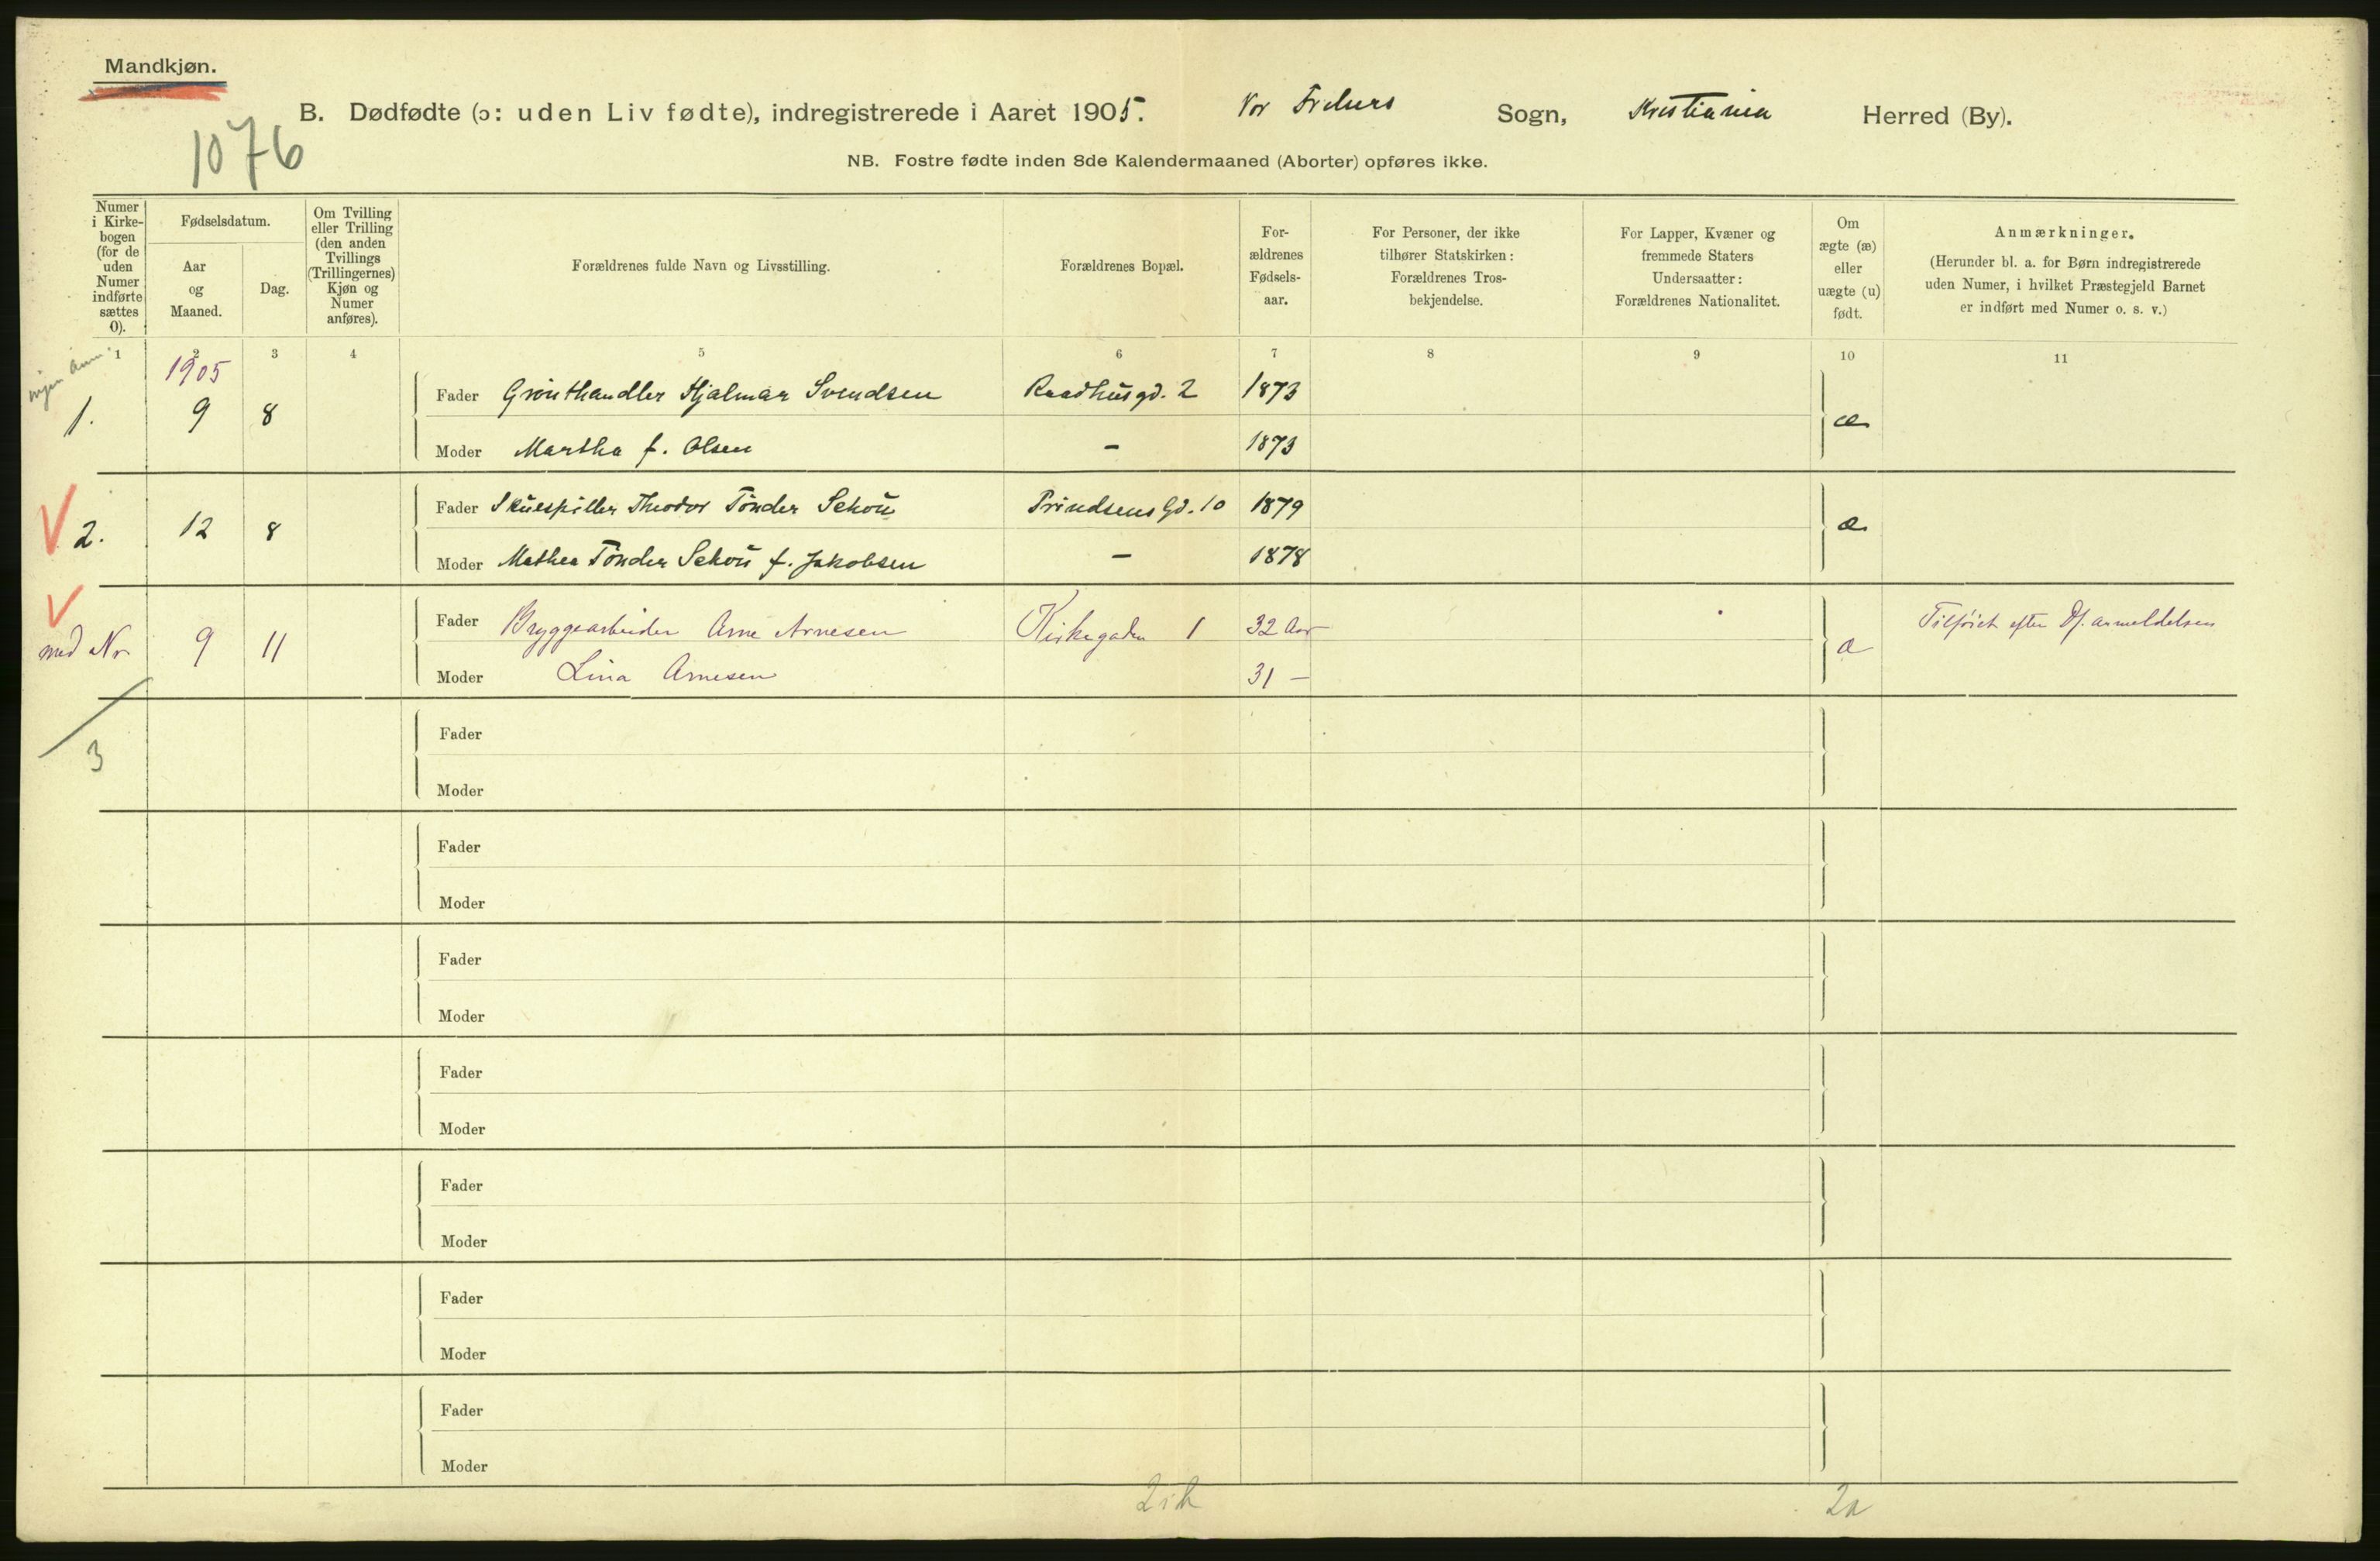 Mandkjøn.
B. Dødfødte (ɔ: uden Liv fødte), indregistrerede i Aaret 1905. Vor Frelsers Sogn, Kristiania Herred (By).
1076
NB. Fostre fødte inden 8de Kalendermaaned (Aborter) opføres ikke.
Numer i Kirkebogen (for de uden Numer indførte sættes 0).
Fødselsdatum.
Aar og Maaned.
Dag.
Om Tvilling eller Trilling (den anden Tvillings (Trillingernes) Kjøn og Numer anføres).
Forældrenes fulde Navn og Livsstilling.
Forældrenes Bopæl.
Forældrenes Fødselsaar.
For Personer, der ikke tilhører Statskirken: Forældrenes Trosbekjendelse.
For Lapper, Kvæner og fremmede Staters Undersaatter: Forældrenes Nationalitet.
Om ægte (æ) eller uægte (u) født.
Anmærkninger.
(Herunder bl. a. for Børn indregistrerede uden Numer, i hvilket Præstegjeld Barnet er indført med Numer o. s. v.)
1 2 3 4 5 6 7 8 9 10 11
ingen anm.
1905
1. 9 8 Fader Grønthandler Hjalmar Svendsen Raadhusgd. 2 1873 æ
Moder Martha f. Olsen – 1873
V 2. 12 8 Fader Skuespiller Theodor Tönder Schou Prindsens Gd. 10 1879 æ
Moder Mathea Tönder Schou f. Jakobsen – 1878
V
med Nr 9 11 Fader Bryggearbeider Arne Arnesen Kirkegaden 1 32 Aar æ Tilføiet efter Df. anmeldelsen
Moder Lina Arnesen 31 –
3
Fader
Moder
Fader
Moder
Fader
Moder
Fader
Moder
Fader
Moder
Fader
Moder
Fader
Moder
2